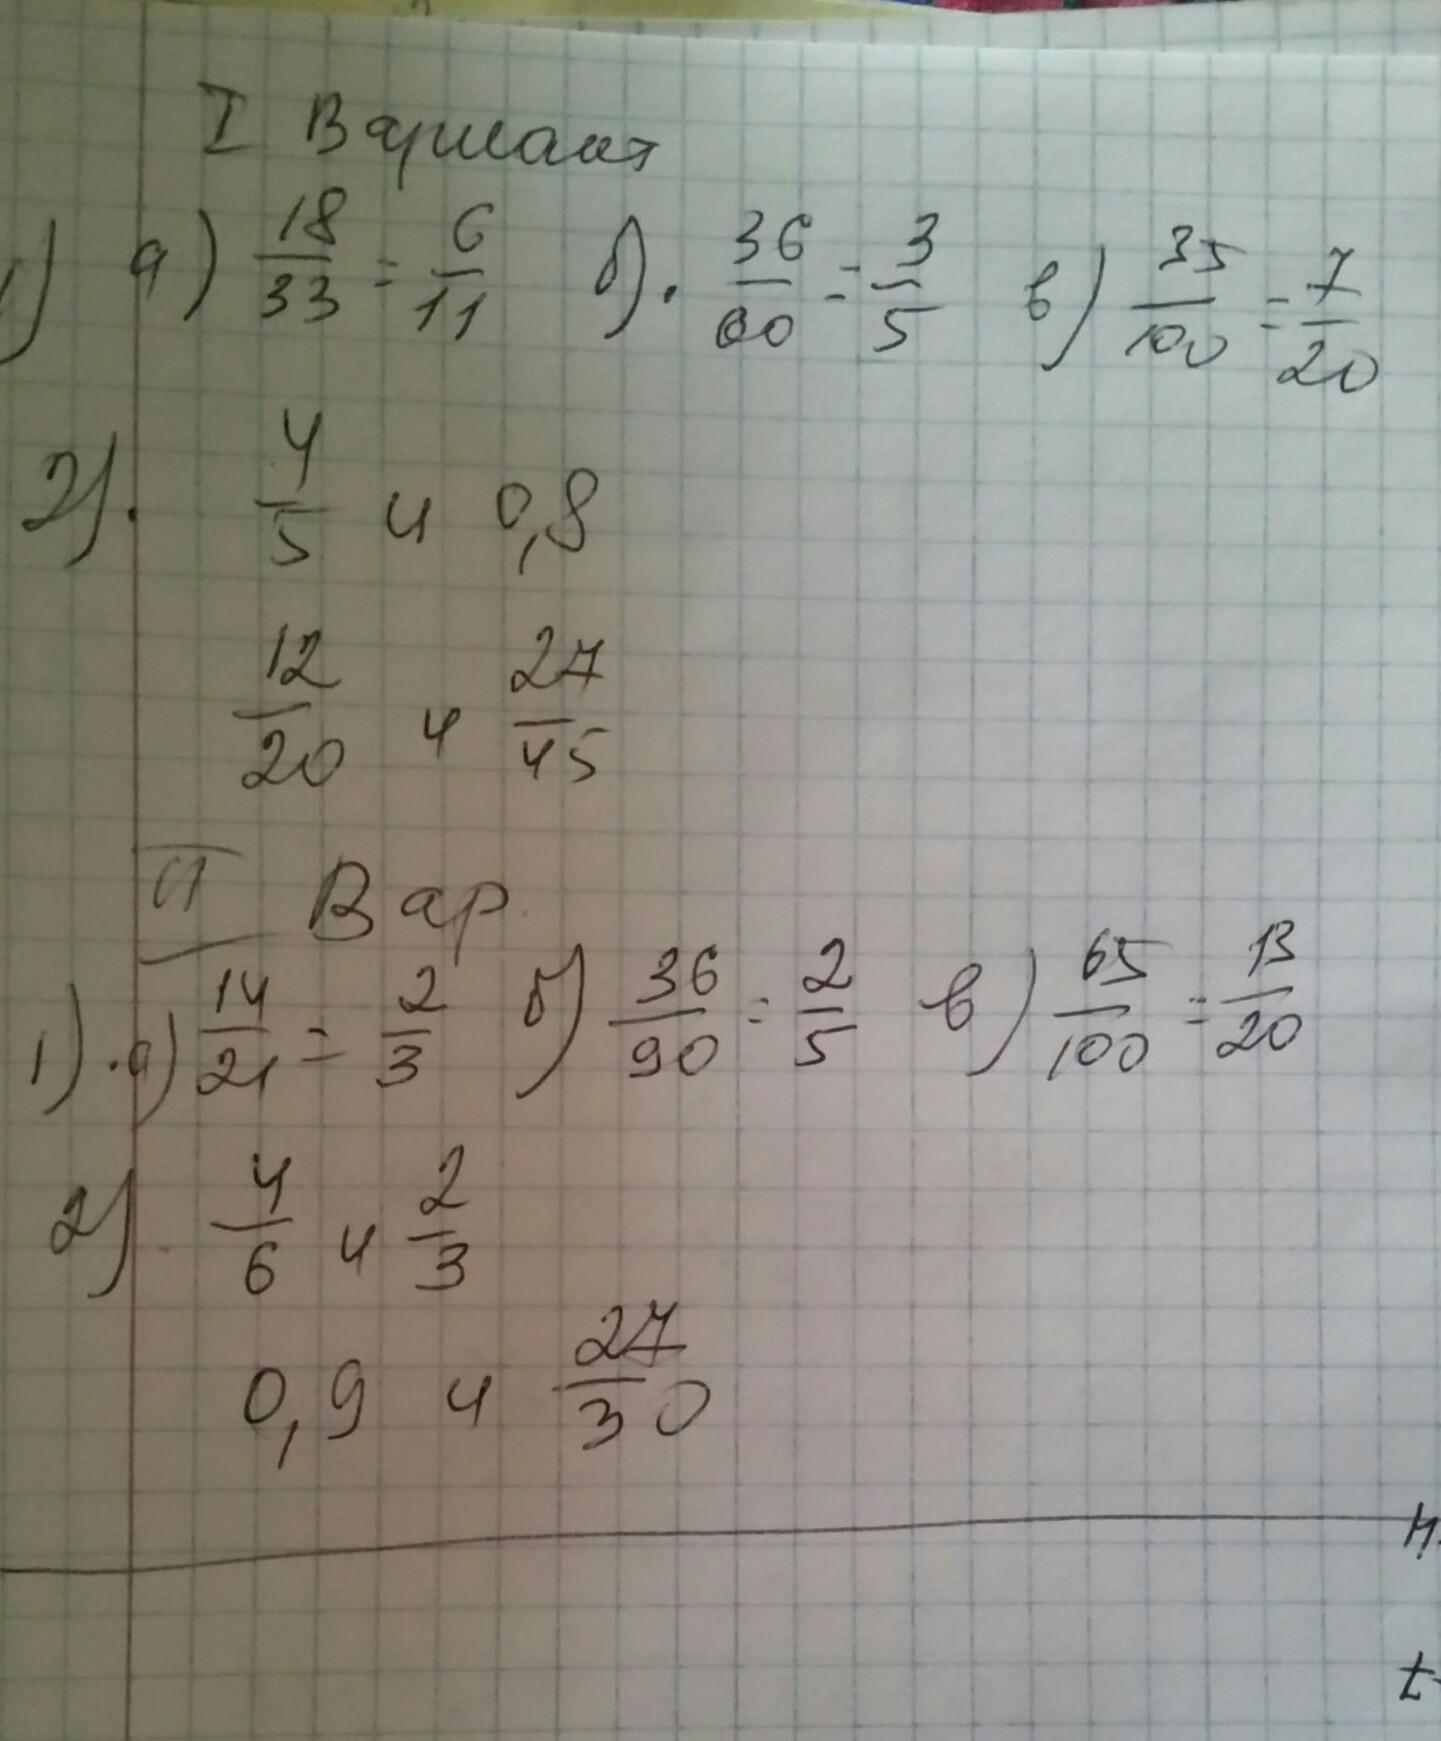 I Вариант
1) а) 18/33 = 6/11 б). 36/60 = 3/5 в) 35/100 = 7/20
2). 4/5 и 0,8
12/20 и 27/45
II Вар.
1). а) 14/21 = 2/3 б) 36/90 = 2/5 в) 65/100 = 13/20
2). 4/6 и 2/3
0,9 и 27/30